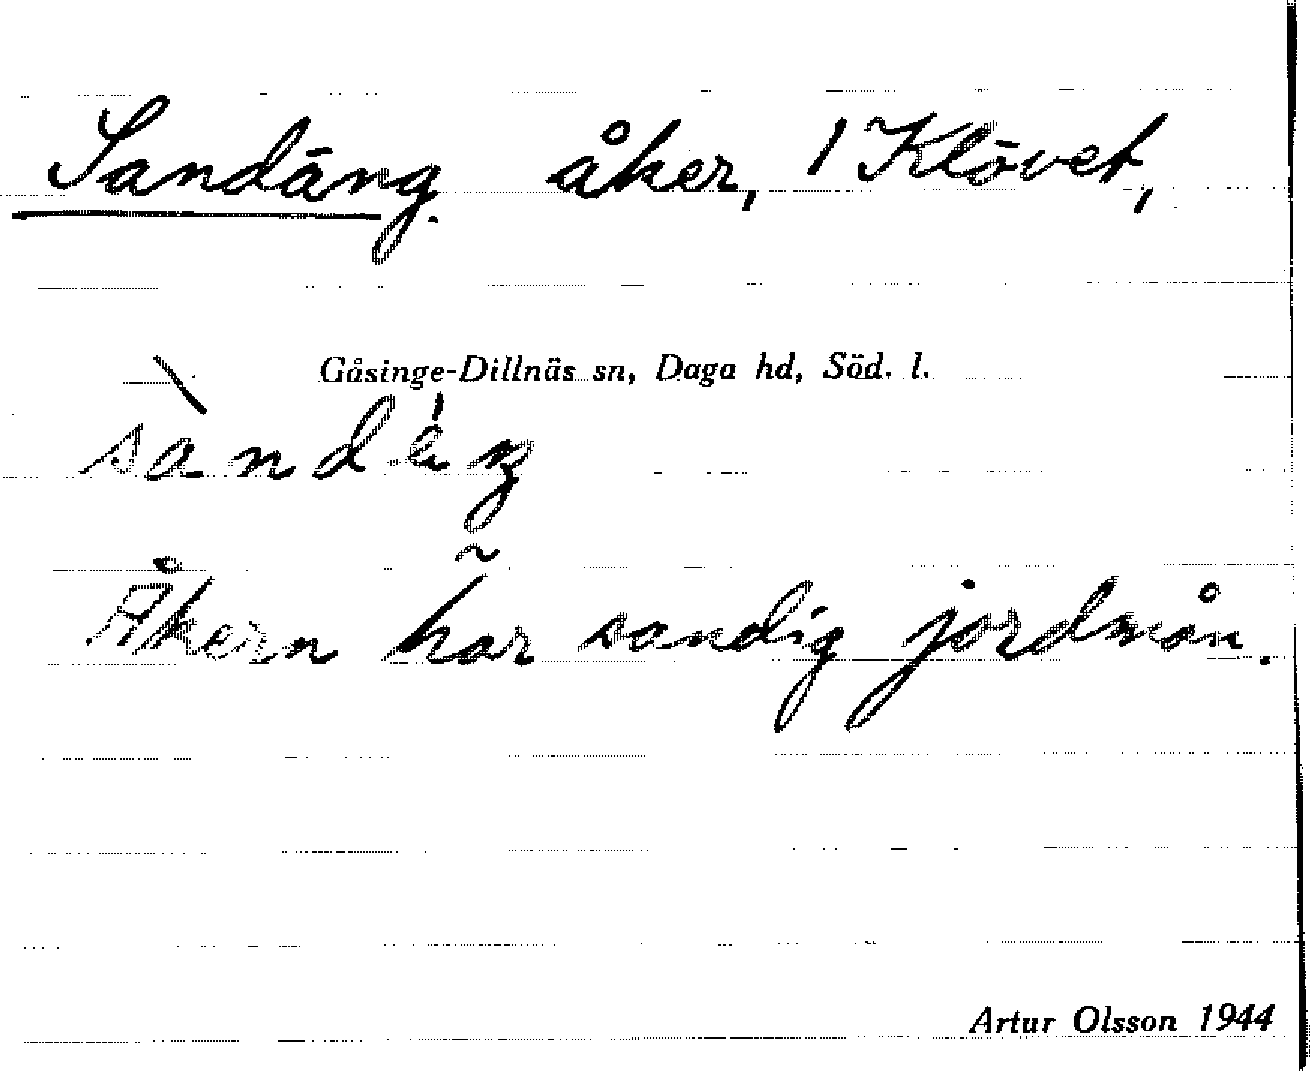 Sandäng. åker, 1 Klövet,
Gåsinge-Dillnäs sn, Daga hd, Söd. l.
Åkern har sandig jordmån.
Artur Olsson 1944